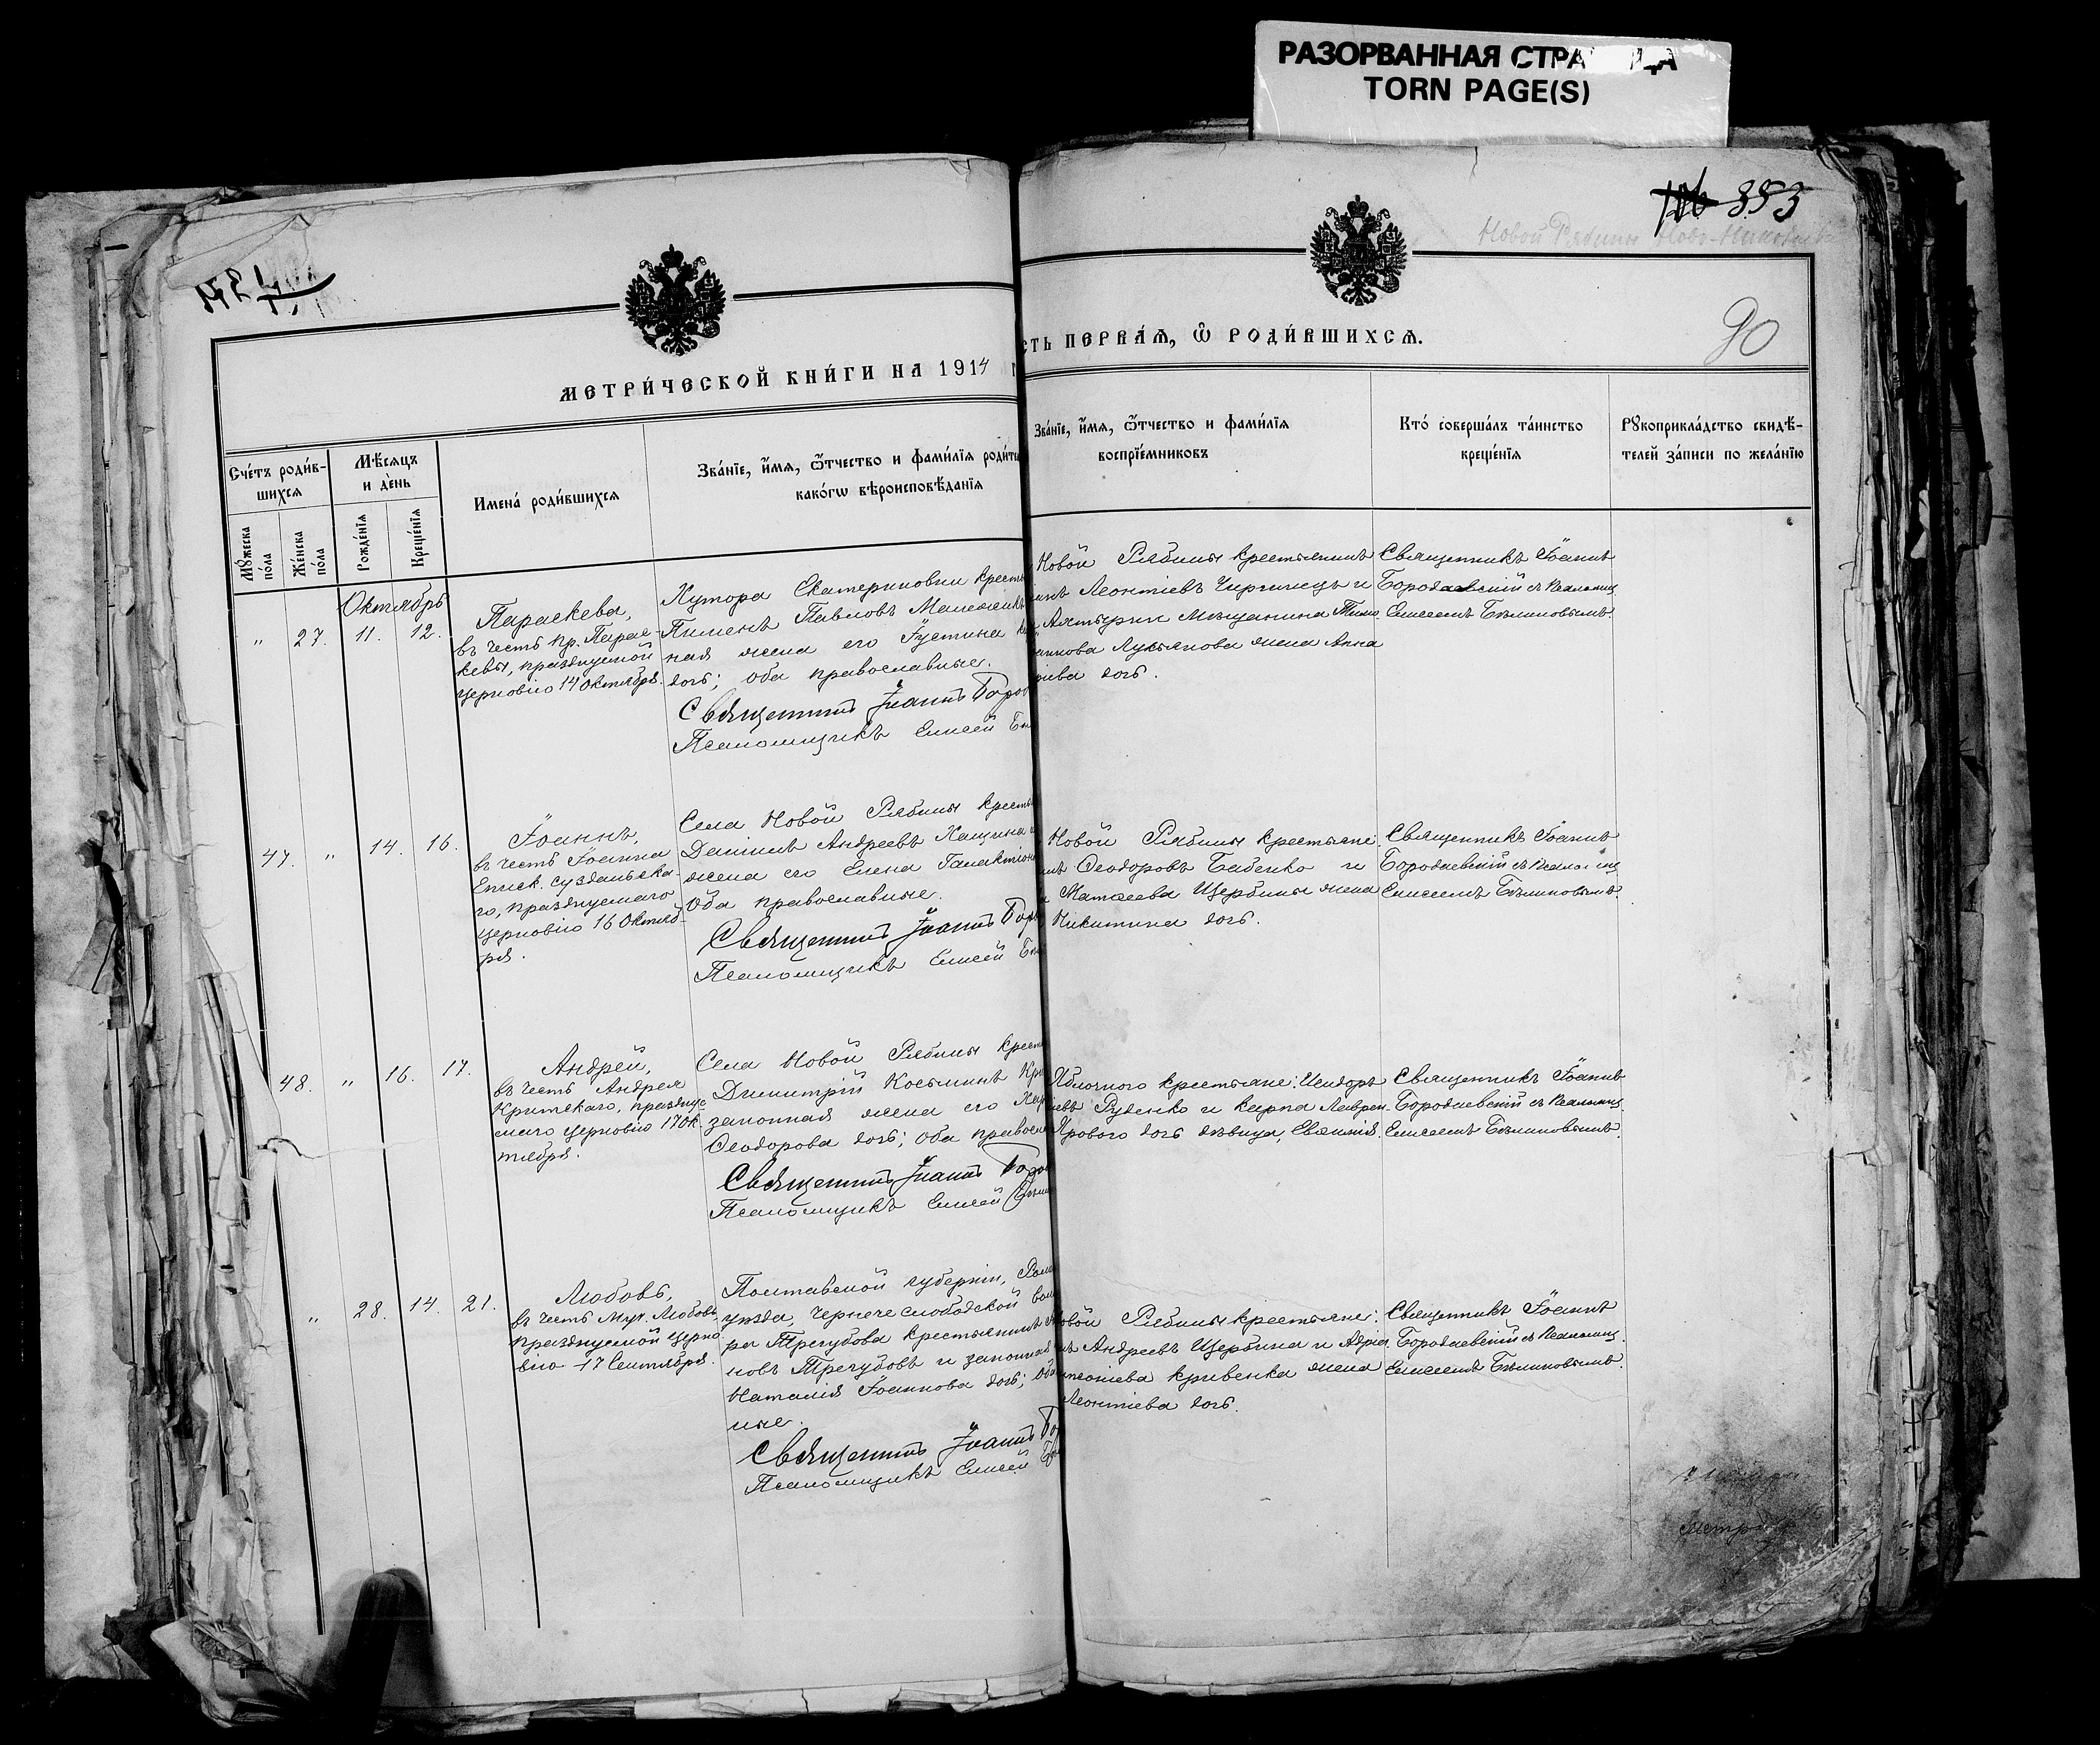 РАЗОРВАННАЯ СТРА ЦА
TORN PAGE(S)
353
Новой Рябины Ново-Николаев
90
МЕТРИ́ЧЕСКОЙ КНИ́ГИ НА 1914
СТЬ ПЕРВА́Я, Ѿ РОДИ́ВШИХСЯ.
Сче́тъ роди́в-
шихся
Мѣ́сяцъ
и де́нь
Имена́ роди́вшихся
Зва́нїе, и҆́мя, ѻ҆́тчество и фами́лїя роди́те
како́гѡ вѣроисповѣ́данїя
Мꙋ́жеска
по́ла
Же́нска
по́ла
Рожде́нїя
Креще́нїя
Зва́нїе, и҆́мя, ѻ҆́тчество и фами́лїя
воспрїе́мниковъ
Кто́ соверша́лъ та́инство
креще́нїя
Рꙋкоприкла́дство свидѣ́-
телей за́писи по жела́нїю
Октябрь
" 27. 11. 12.
Параскева,
въ честь пр. Парас-
кевы, празднуемой
церковію 14 Октября.
Хутора Екатериновки кресть
Пименъ Павловъ
ная жена его Іустина
дочь; оба православные.
Священникъ Іоаннъ Боро
Псаломщикъ Елисей Бѣ
Новой Рябины крестьянинъ
Леонтіевъ Чирчинецъ и
Ахтырки мѣщанина Тимо
Лукьянова жена Анна
ева дочь.
Священникъ Іоаннъ
Бородаевскій съ псаломщ.
Елисеемъ Бѣликовымъ.
47. " 14. 16.
Іоаннъ,
въ честь Іоанна
Еписк. Суздальска-
го, празднуемаго
церковію 16 Октяб-
ря.
Села Новой Рябины кресть
Даніилъ Андреевъ Хащина и
жена его Елена Галактіоно
Оба православные.
Священникъ Іоаннъ Боро
Псаломщикъ Елисей Бѣ
Новой Рябины крестьяне:
Ѳеодоровъ Бабенко и
Матѳеева Щербины жена
Никитина дочь.
Священникъ Іоаннъ
Бородаевскій съ псаломщ
Елисеемъ Бѣликовымъ.
48. " 16. 17.
Андрей,
въ честь Андрея
Критскаго, праздну-
емаго церковію 17 Ок-
тября.
Села Новой Рябины крест
Димитрій Косьминъ Кри
законная жена его Хар
Ѳеодорова дочь; оба правосл
Священникъ Іоаннъ Боро
Псаломщикъ Елисей Бѣли
Яблочного крестьяне: Исидоръ
евъ Руденко и Карпа Лаврен.
Ярового дочь дѣвица, Евѳимія.
Священникъ Іоаннъ
Бородаевскій съ псаломщ.
Елисеемъ Бѣликовымъ.
" 28. 14. 21.
Любовь,
въ честь муч. Любови,
празднуемой церко-
вію 17 Сентября.
Полтавской губерніи, Ром
уѣзда, Чернече слободской вол
ра Трегубова крестьянинъ
новъ Трегубовъ и законная
Наталія Іоаннова дочь; оба
ные.
Священникъ Іоаннъ Бор
Псаломщикъ Елисей Бѣ
овой Рябины крестьяне:
Андреевъ Щербина и Адріа
Кривенка жена
Леонтіева дочь.
Священникъ Іоаннъ
Бородаевскій съ псаломщ.
Елисеемъ Бѣликовымъ.